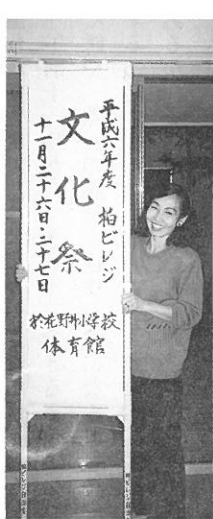 平成六年度 柏ビレジ
文化祭
十一月二十六日・二十七日
於花野井小学校
体育館